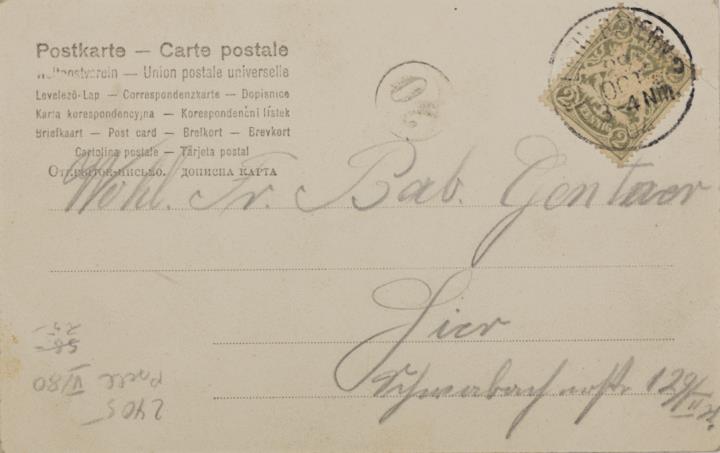 Postkarte — Carte postale
Weltpostverein — Union postale universelle
Levelező-Lap — Correspondenzkarte — Dopisnice
Karta korespondencyjna — Korespondenční lístek
Briefkaart — Post card — Brefkort — Brevkort
Cartolina postale — Tarjeta postal
Открытое письмо. дописна карта
20
OCT
3-4 NM.
2
Wohl. Fr. Bab.
Hier
Schwabacherstr. 129/III
25.-
58.-
V/80
2405